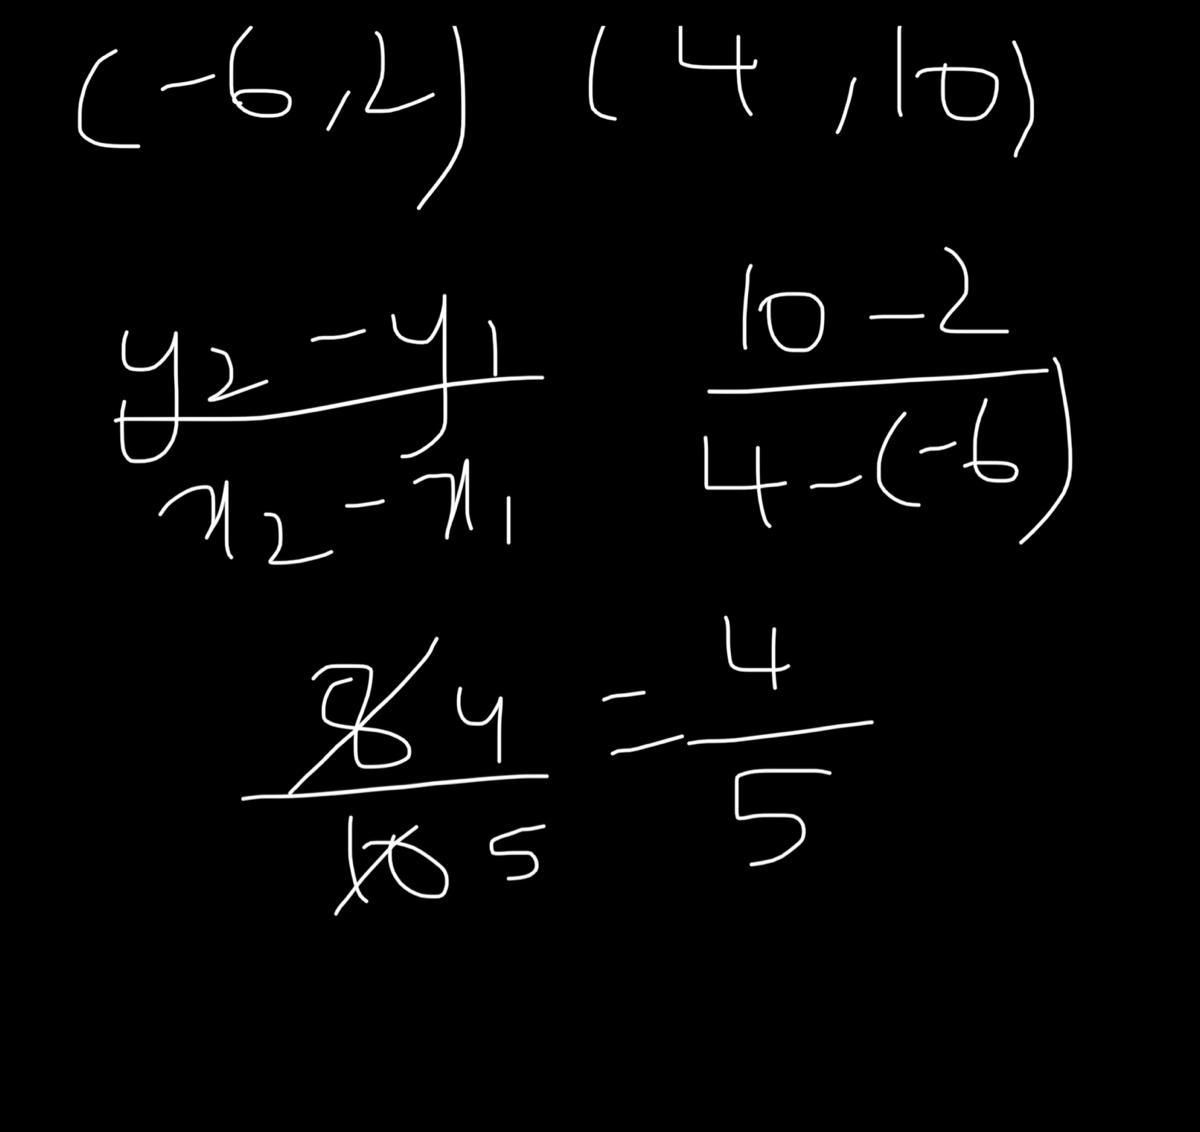 (-6,2) (4,10)
y₂-y₁/x₂-x₁ 10-2/4-(-6)
8 4/10 5 = 4/5